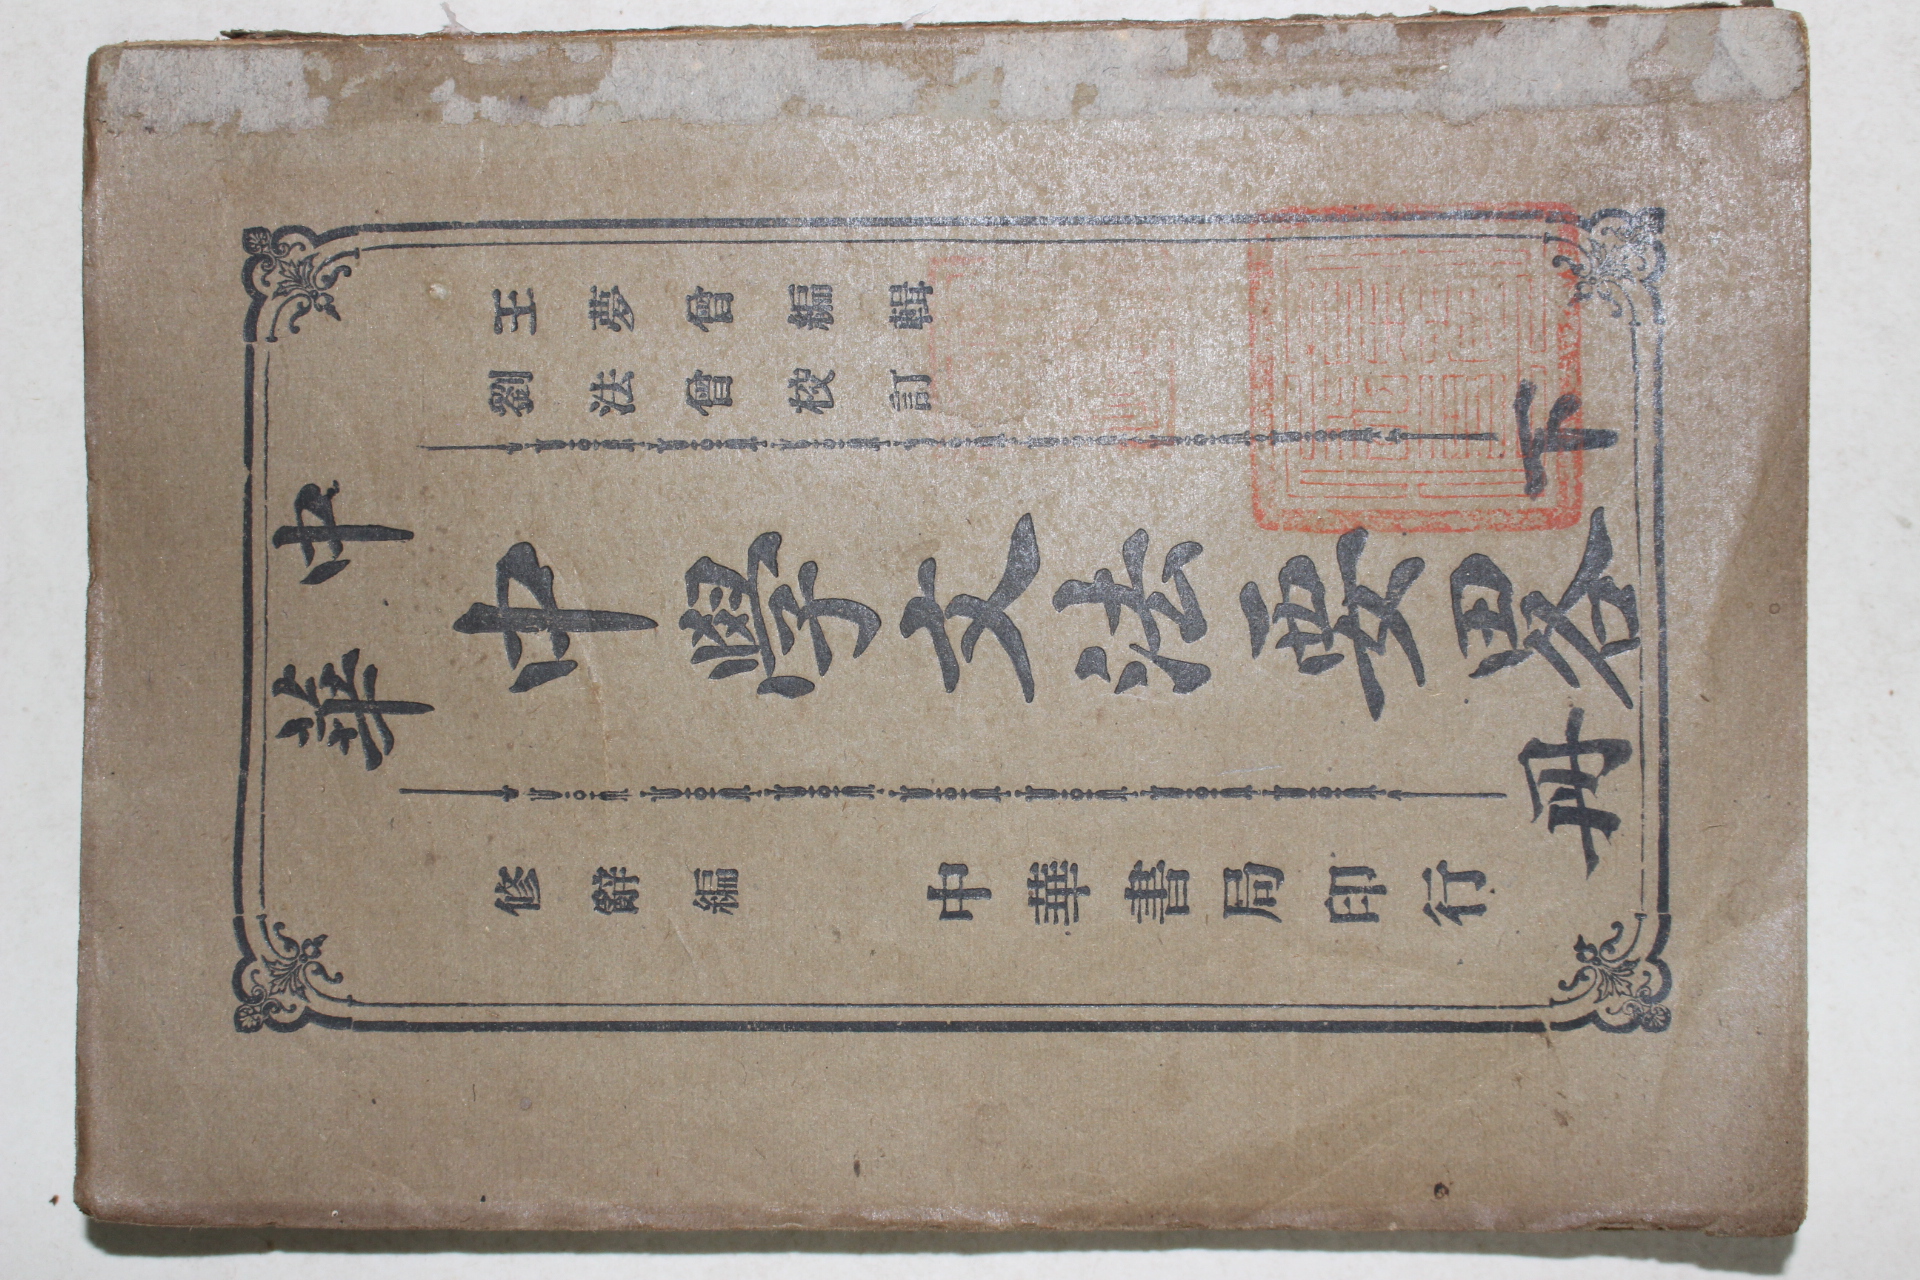 中華
王夢曾編輯
劉法曾校訂
中學文法要畧
下冊
修辭編　中華書局印行